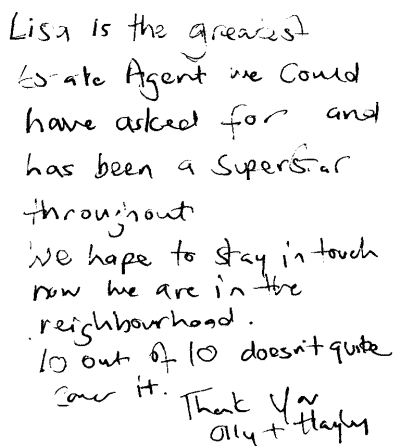 Lisa is the greatest
Estate Agent we Could
have asked for and
has been a Superstar
throughout
We hope to stay in touch
now we are in the
neighbourhood.
10 out of 10 doesn't quite
cover it.
Thank You
Olly + Hayley